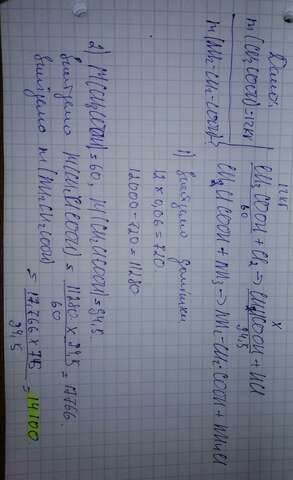 Дано:
m(CH₃COOH)=12кг
m(NH₂-CH₂-COOH)?
12кг x
CH₃COOH + Cl₂ → CH₂ClCOOH + HCl
60 94,5
CH₂ClCOOH + NH₃ → NH₂-CH₂-COOH + NH₄Cl
1) вишедшо домішки
12 × 0,06 = 720
12000-720 = 11280
2) M(CH₃COOH)=60, M(CH₂ClCOOH)=94,5
M(CH₂ClCOOH) = 11280 × 94,5 / 60 = 17766.
m(NH₂CH₂COOH) = 17766 × 75 / 94,5 = 14100